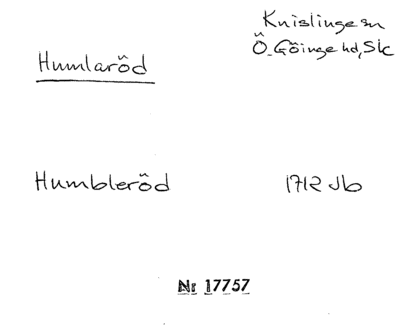 Knislinge sn
Humlaröd
Ö. Göinge hd, Sk
Humbleröd 1712 Jb
Nr 17757